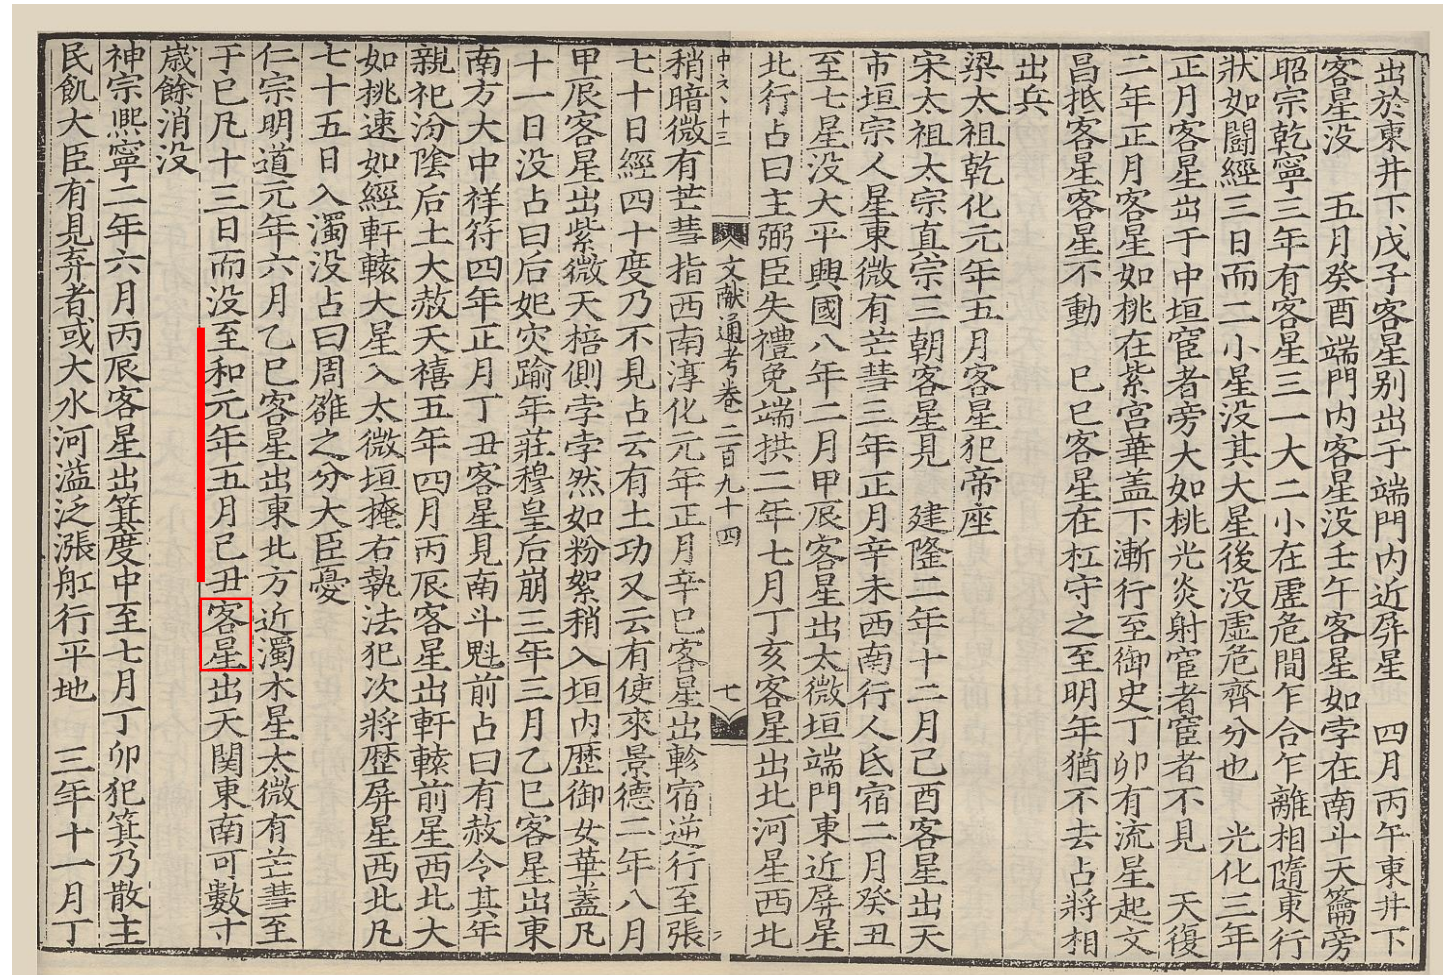 出於東井下戊子客星别出于端門内近屏星　四月丙午東井下
客星没　五月癸酉端門内客星没壬午客星如孛在南斗天籥旁
昭宗乾寧三年有客星三一大二小在虚危間乍合乍離相隨東行
狀如鬭經三日而二小星没其大星後没虚危齊分也　光化三年
正月客星出于中垣宦者旁大如桃光炎射宦者宦者不見　天復
二年正月客星如桃在紫宫華盖下漸行至御史丁卯有流星起文
昌抵客星客星不動　巳巳客星在杠守之至明年猶不去占將相
出兵
梁太祖乾化元年五月客星犯帝座
宋太祖太宗真宗三朝客星見　建隆二年十二月己酉客星出天
市垣宗人星東微有芒彗三年正月辛未西南行入氐宿二月癸丑
至七星没大平興國八年二月甲辰客星出太微垣端門東近屏星
北行占曰主弼臣失禮免端拱二年七月丁亥客星出北河星西北
文献通考卷二百九十四　七
稍暗微有芒彗指西南淳化元年正月辛巳客星出軫宿逆行至張
七十日經四十度乃不見占云有土功又云有使來景德二年八月
甲辰客星出紫微天棓側孛孛然如粉絮稍入垣内歴御女華盖凡
十一日没占曰后妃灾踰年莊穆皇后崩三年三月乙巳客星出東
南方大中祥符四年正月丁丑客星見南斗魁前占曰有赦令其年
親祀汾陰后土大赦天禧五年四月丙辰客星出軒轅前星西北大
如桃速如經軒轅大星入太微垣掩右執法犯次將歴屏星西北凡
七十五日入濁没占曰周雒之分大臣憂
仁宗明道元年六月乙巳客星出東北方近濁木星太微有芒彗至
于巳凡十三日而没至和元年五月己丑客星出天関東南可數寸
嵗餘消没
神宗熈寧二年六月丙辰客星出箕度中至七月丁卯犯箕乃散主
民飢大臣有見弃者或大水河溢泛漲舡行平地　三年十一月丁